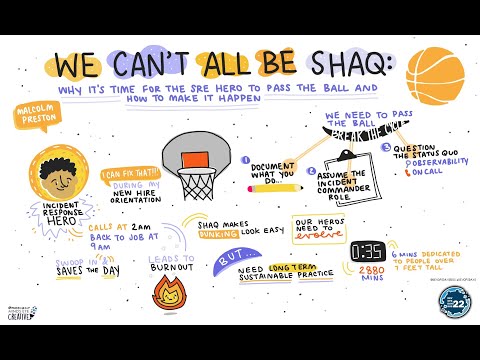 WE CAN'T ALL BE SHAQ:
WHY IT'S TIME FOR THE SRE HERO TO PASS THE BALL AND
HOW TO MAKE IT HAPPEN
MALCOLM
PRESTON
INCIDENT
RESPONSE
HERO
I CAN FIX THAT!!!
DURING MY
NEW HIRE
ORIENTATION
CALLS AT 2AM
BACK TO JOB AT
9AM
SWOOP IN &
SAVES THE DAY
LEADS TO
BURNOUT
WE NEED TO PASS
THE BALL
BREAK THE CYCLE
1 DOCUMENT
WHAT YOU
DO...
2 ASSUME THE
INCIDENT
COMMANDER
ROLE
3 QUESTION
THE STATUS QUO
OBSERVABILITY
ON CALL
SHAQ MAKES
DUNKING LOOK EASY
BUT...
NEED LONG TERM
SUSTAINABLE PRACTICE
OUR HEROS
NEED TO
evolve
0:35
2880
MINS
6 MINS DEDICATED
TO PEOPLE OVER
7 FEET TALL
MIND'S EYE
CREATIVE
22